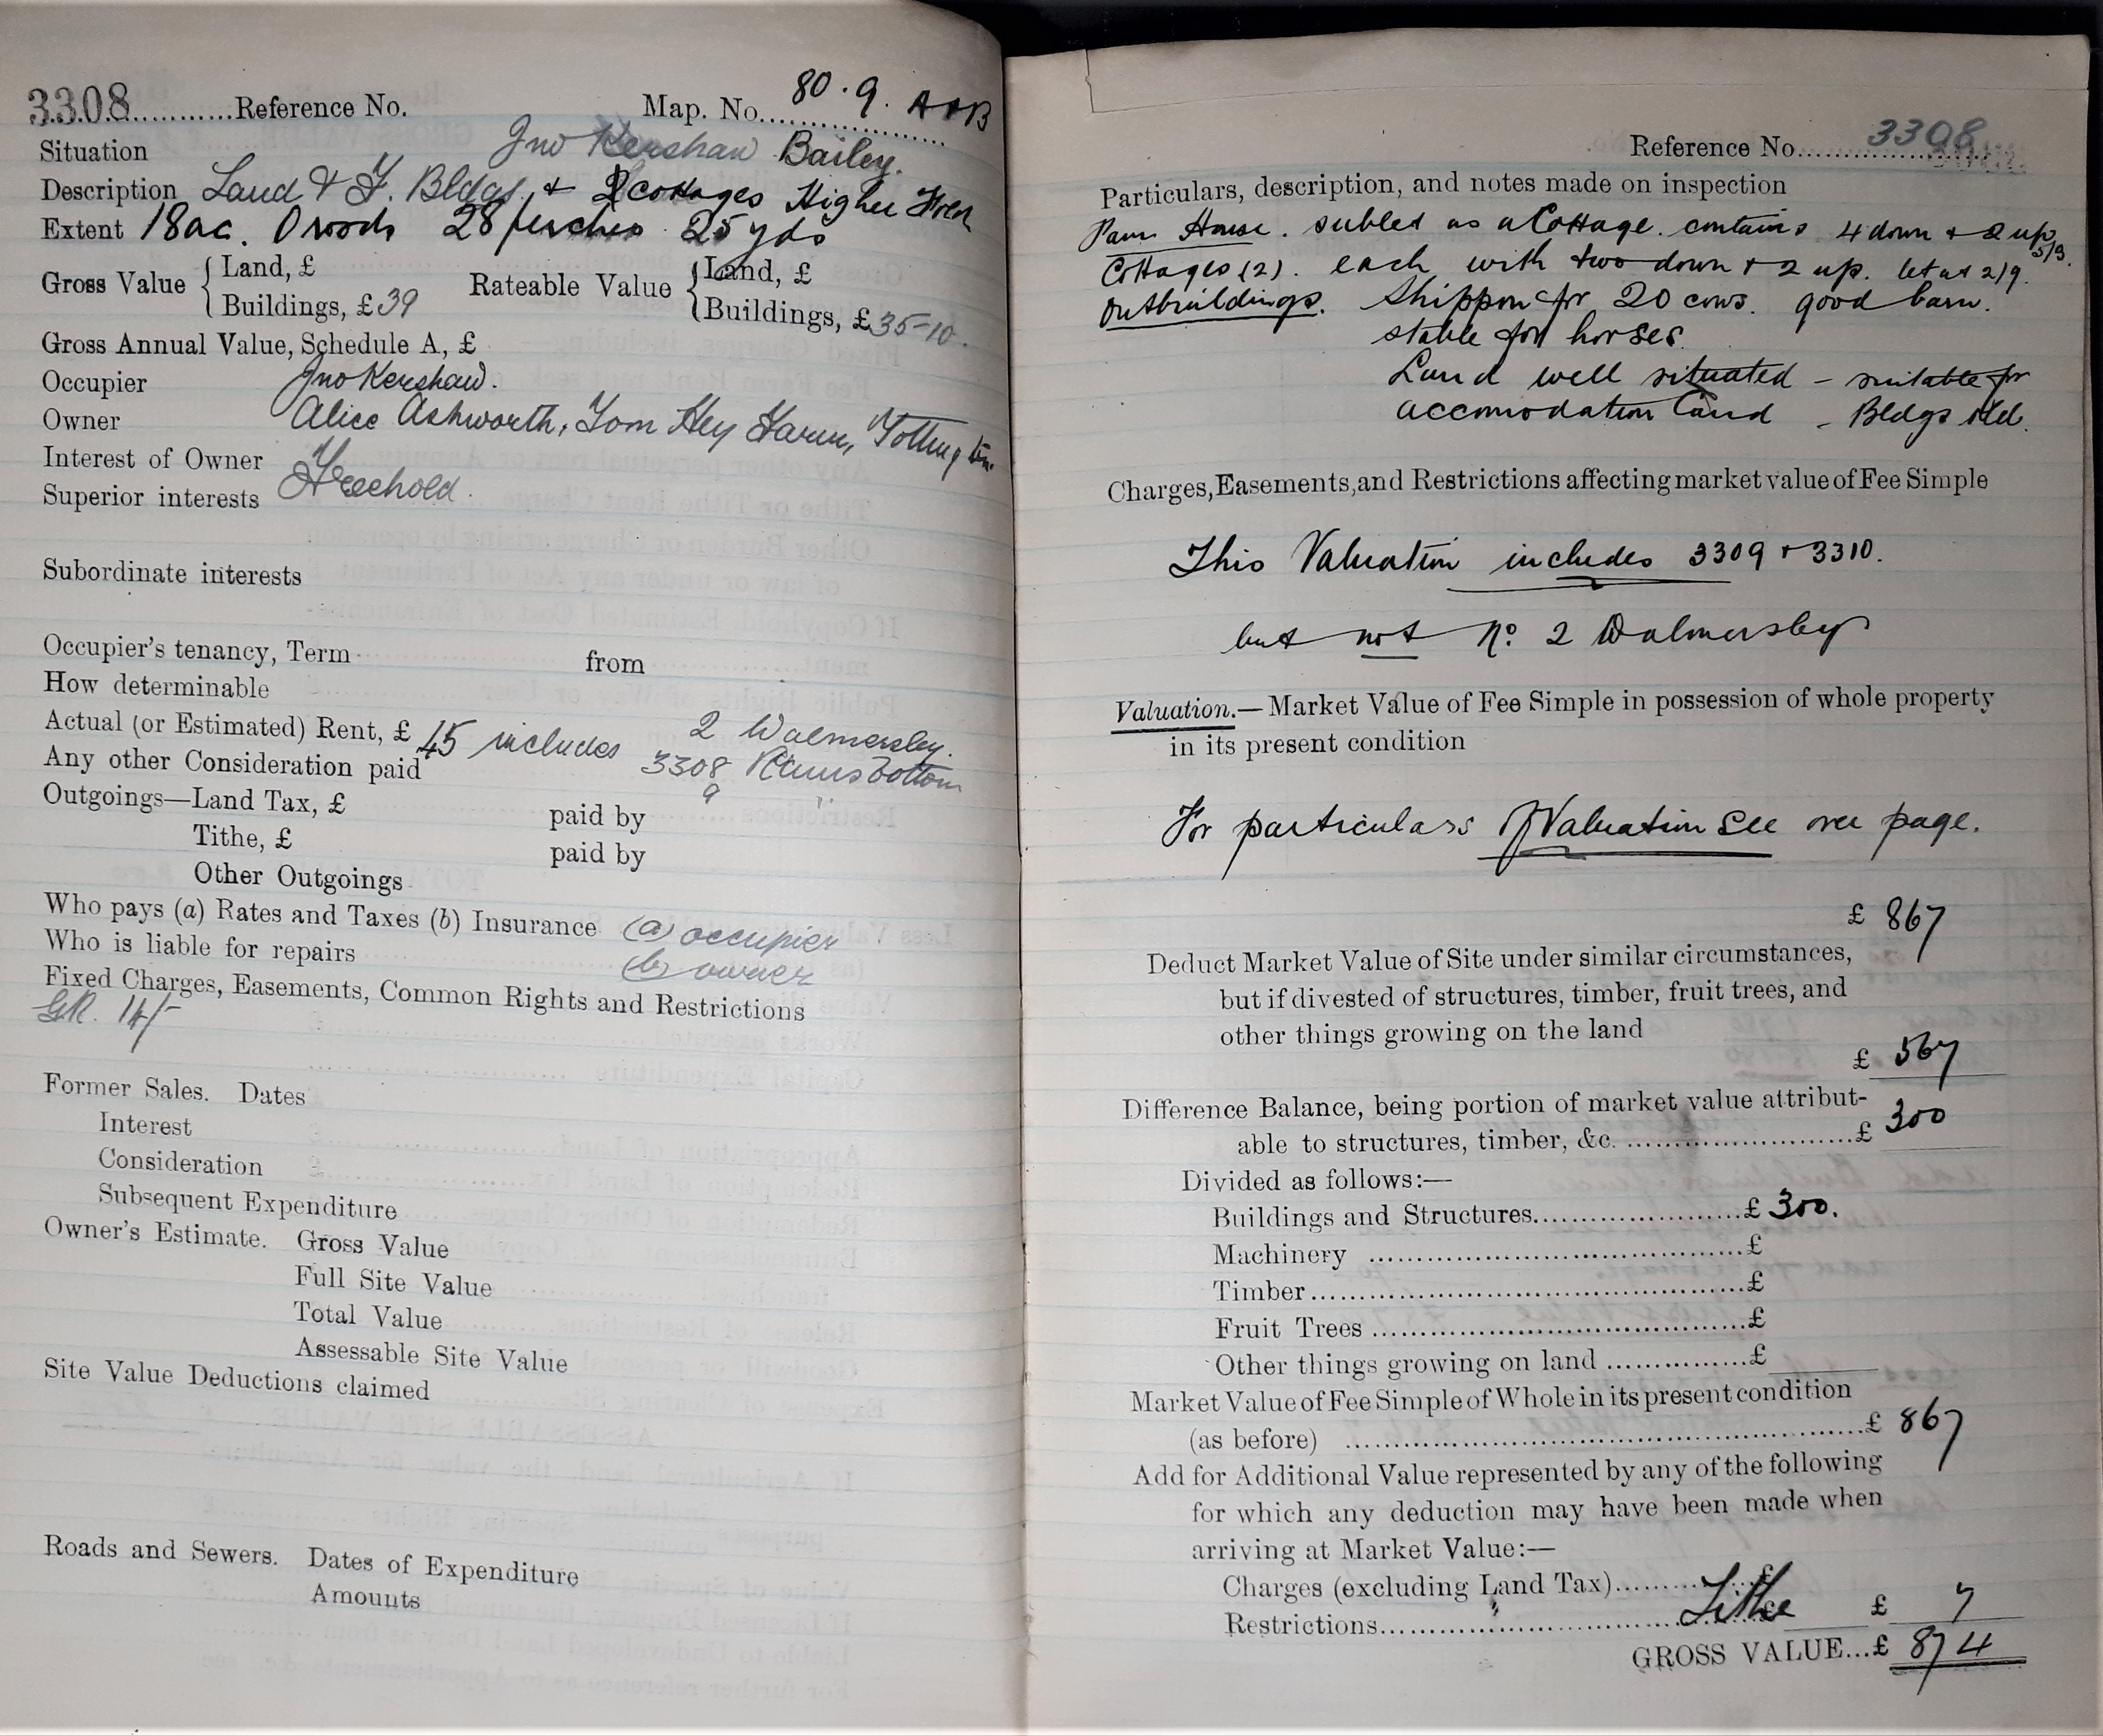 3308............Reference No. Map. No. 80.9. A+B
Situation Jno Kershaw Bailey.
Description Land & F. Bldgs, & 2 cottages Higher
Extent 18ac. 0 roods 28 perches 25 yds
Gross Value { Land, £ Rateable Value { Land, £
Buildings, £39 Buildings, £35-10.
Gross Annual Value, Schedule A, £
Occupier Jno Kershaw.
Owner Alice Ashworth, Tom Hey Farm, Tottington
Interest of Owner Freehold.
Superior interests
Subordinate interests
Occupier's tenancy, Term from
How determinable
Actual (or Estimated) Rent, £ 45 includes 2 Walmersley.
Any other Consideration paid 3308 Ramsbottom
9
Outgoings—Land Tax, £ paid by
Tithe, £ paid by
Other Outgoings
Who pays (a) Rates and Taxes (b) Insurance (a) occupier
Who is liable for repairs (b) owner
Fixed Charges, Easements, Common Rights and Restrictions
GR. 14/-
Former Sales. Dates
Interest
Consideration
Subsequent Expenditure
Owner's Estimate. Gross Value
Full Site Value
Total Value
Assessable Site Value
Site Value Deductions claimed
Roads and Sewers. Dates of Expenditure
Amounts
Reference No. 3308
Particulars, description, and notes made on inspection
Farm House. sublet as a Cottage. contains 4 down & 2 up 3/3.
Cottages (2). each with two down & 2 up. let at 2/9.
Outbuildings. Shippon for 20 cows. good barn.
stable for horses.
Land well situated - suitable for
accomodation land - Bldgs old.
Charges, Easements, and Restrictions affecting market value of Fee Simple
This Valuation includes 3309 & 3310.
but not No. 2 Walmersley
Valuation.— Market Value of Fee Simple in possession of whole property
in its present condition
For particulars of Valuation see over page.
£ 867
Deduct Market Value of Site under similar circumstances,
but if divested of structures, timber, fruit trees, and
other things growing on the land
£ 567
Difference Balance, being portion of market value attribut-
able to structures, timber, &c. ........................£ 300
Divided as follows:—
Buildings and Structures........................£ 300.
Machinery ........................£
Timber........................£
Fruit Trees ........................£
Other things growing on land ................£
Market Value of Fee Simple of Whole in its present condition
(as before) ........................£ 867
Add for Additional Value represented by any of the following
for which any deduction may have been made when
arriving at Market Value:—
Charges (excluding Land Tax)..........£
Restrictions........................ Tithe £ £ 7
GROSS VALUE...£ 874